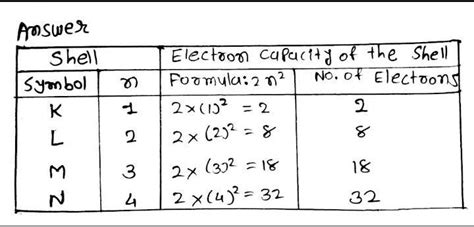 Answer
Shell Electron Capacity of the Shell
Symbol n Formula: 2n² No. of Electrons
K 1 2×(1)² = 2 2
L 2 2×(2)² = 8 8
M 3 2×(3)² = 18 18
N 4 2×(4)² = 32 32